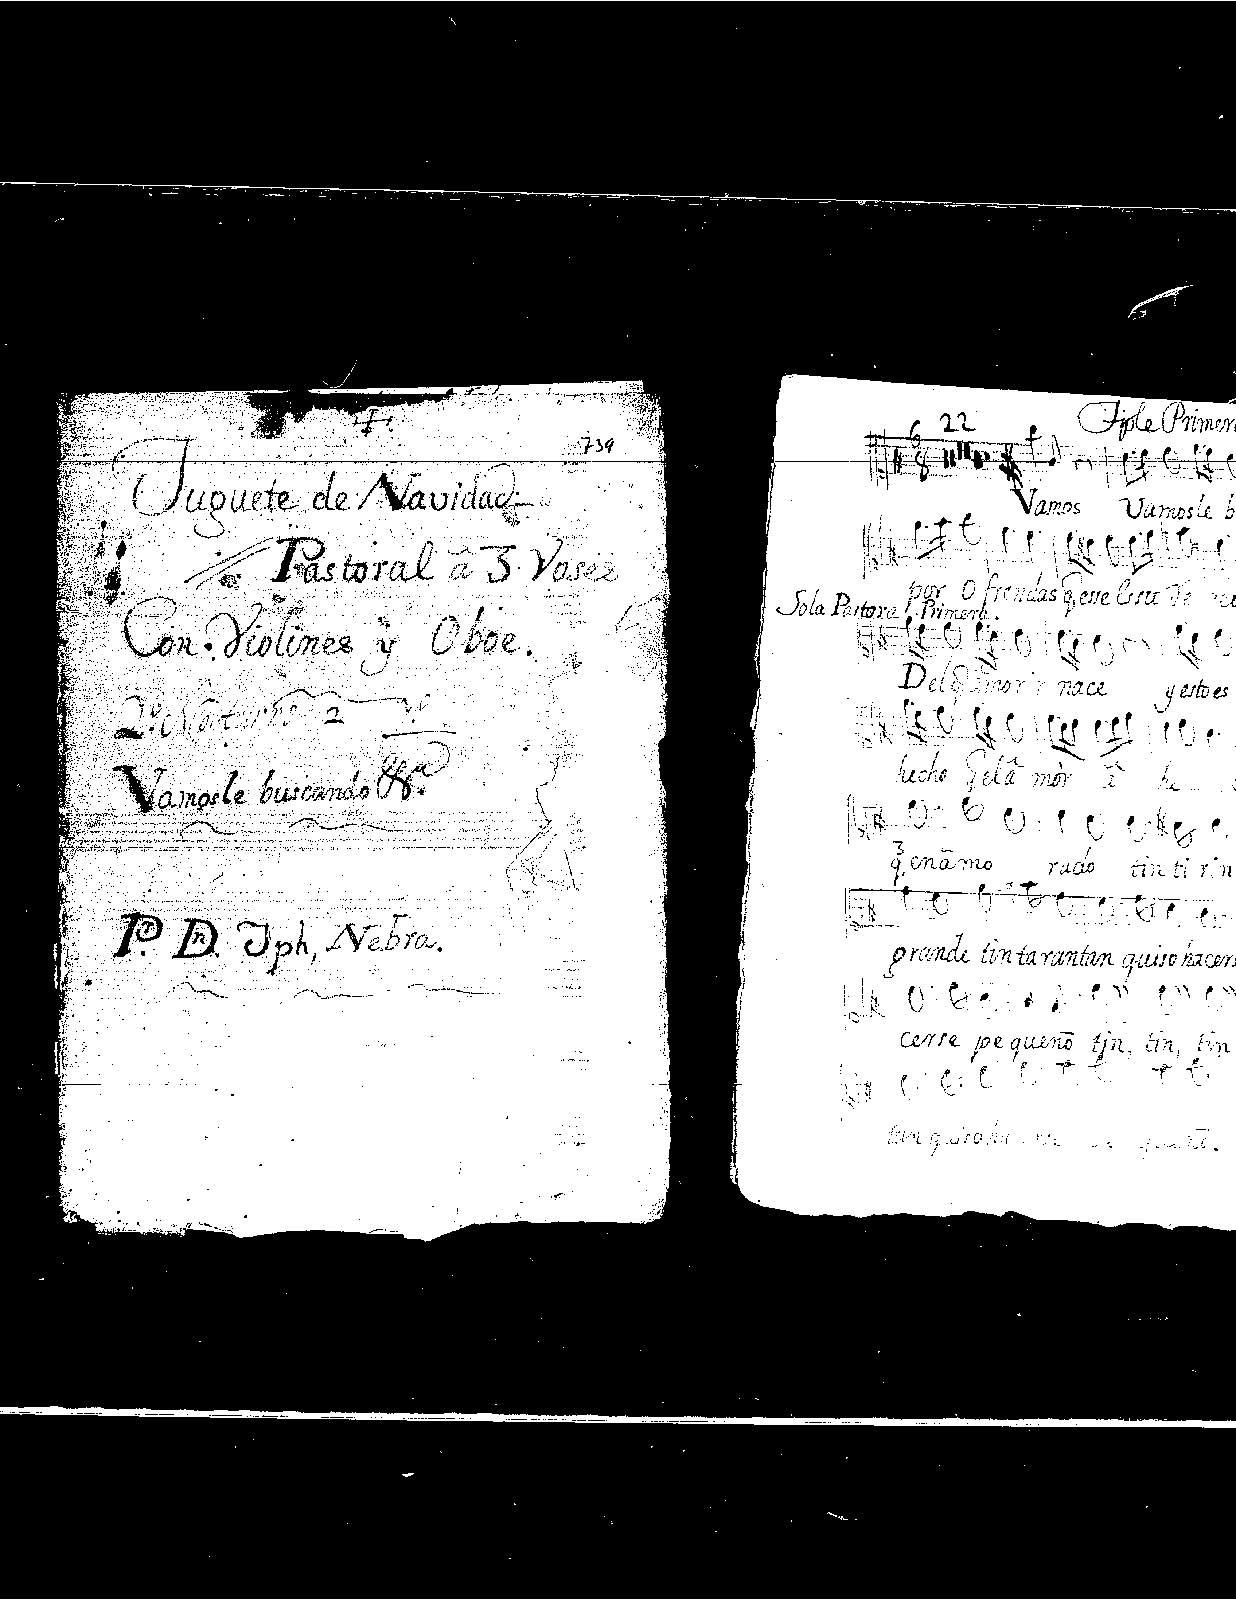 739
Juguete de Navidad
Pastoral â 3 Vosez
Con Violines ÿ Oboe.
2º Nocturno 2
Vamosle buscando &ª
P. Dn. Jph, Nebra.
Tiple Primer
22
6
8
Vamos Vamosle b
por Ofrendas q̃ ese
Sola Pastora Primera.
Del nace y esto es
hecho q̃ el â mòr â
3
q̃ enâmo rado tin ti rin
grande tin ta rantan quiso hacers
cerse pequenõ tin, tin, tin